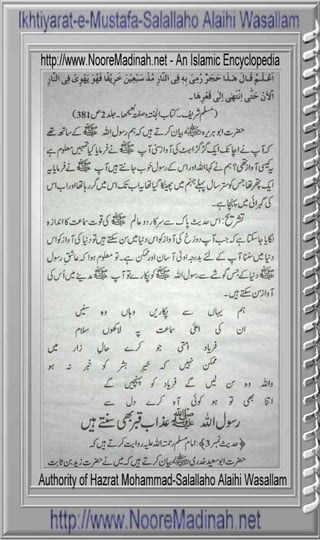 Ikhtiyarat-e-Mustafa-Salallaho Alaihi Wasallam
http://www.NooreMadinah.net - An Islamic Encyclopedia
اَعْلَمُ قَالَ هٰذَا حَجَرٌ رُمِيَ بِهِ فِي النَّارِ مُذْ سَبْعِيْنَ خَرِيْفًا فَهُوَ يَهْوِيْ فِي النَّارِ
الْاٰنَ حَتّٰى انْتَهٰى اِلٰى قَعْرِهَا۔
(مسلم شریف۔ کتاب الجنۃ وصفۃ نعیمھا۔ جلد 2 ص 381)
حضرت ابو ہریرہ بیان کرتے ہیں کہ ہم رسول اللہ ﷺ کے ساتھ تھے
کہ آپ نے اچانک ایک گڑگڑاہٹ کی آواز سنی آپ ﷺ نے فرمایا کیا تمہیں معلوم ہے
یہ کیسی آواز تھی؟ ہم نے کہا اللہ اور اس کے رسول خوب جانتے ہیں آپ ﷺ نے فرمایا یہ
ایک پتھر تھا جس کو ستر سال پہلے جہنم میں پھینکا گیا تھا یہ اب تک اس میں گر رہا تھا اور اب اس
کی گہرائی میں پہنچا ہے۔
تشریح: اس حدیث پاک سے سرکار دو عالم ﷺ کی قوت سماعت کا اندازہ
لگایا جا سکتا ہے کہ جب آپ دوزخ کی آواز کو اس دنیا میں سن سکتے ہیں تو دنیا کی آواز کو اس
دنیا میں سننا آپ کے لئے بدرجہ اولیٰ آسان اور ممکن ہے۔ تو معلوم ہوا کہ عاشق رسول
ﷺ دنیا کے جس گوشے سے رسول اللہ ﷺ کو پکارے تو آپ ﷺ مدینے میں اُس کی
آواز سن سکتے ہیں۔
ہم یہاں سے پکاریں وہاں وہ سنیں
ان کی اعلیٰ سماعت پہ لاکھوں سلام
فریاد امتی جو کرے حال زار میں
ممکن نہیں کہ خیر بشر کو خبر نہ ہو
واللہ وہ سن لیں گے فریاد کو پہنچیں گے
اتنا بھی تو ہو کوئی آہ کرے دل سے
رسول اللہ ﷺ عذاب قبر بھی سنتے ہیں
﴿حدیث نمبر 3﴾: امام مسلم رحمۃ اللہ علیہ روایت کرتے ہیں کہ
حضرت ابو سعید خدری بیان کرتے ہیں کہ میں نے حضرت زید بن ثابت
Authority of Hazrat Mohammad-Salallaho Alaihi Wasallam
http://www.NooreMadinah.net